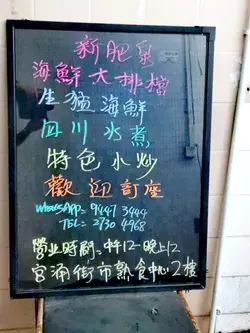 新肥泉
海鮮大排檔
生猛海鮮
四川水煮
特色小炒
歡迎訂座
WhatsAPP= 9447 3444
TEL= 2730 4968
營業時間=中午12-晚上12
官涌街市熟食中心2樓